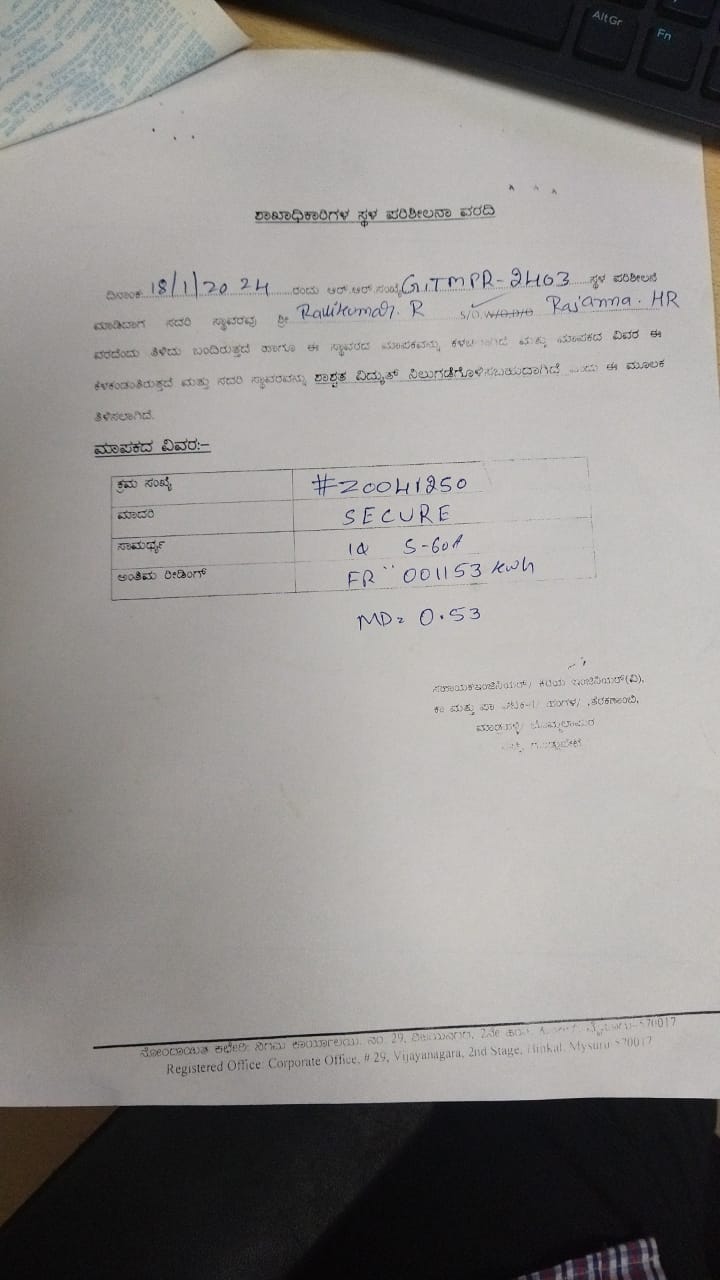 AltGr
Fn
ಶಾಖಾಧಿಕಾರಿಗಳ ಸ್ಥಳ ಪರಿಶೀಲನಾ ವರದಿ
ದಿನಾಂಕ: 18/1/2024 ರಂದು ಆರ್.ಆರ್.ಸಂಖ್ಯೆ GTMPR-2403 ಸ್ಥಳ ಪರಿಶೀಲನೆ
ಮಾಡಿದಾಗ ಸದರಿ ಸ್ಥಾವರವು ಶ್ರೀ Ravikumar. R S/O, W/O, D/O Rajanna. HR
ರವರೆಂದು ತಿಳಿದು ಬಂದಿರುತ್ತದೆ ಹಾಗೂ ಈ ಸ್ಥಾವರದ ಮಾಪಕವನ್ನು ಕಳಚಲಾಗಿದೆ ಮತ್ತು ಮಾಪಕದ ವಿವರ ಈ
ಕೆಳಕಂಡಂತಿರುತ್ತದೆ ಮತ್ತು ಸದರಿ ಸ್ಥಾವರವನ್ನು ಶಾಶ್ವತ ವಿದ್ಯುತ್ ನಿಲುಗಡೆಗೊಳಿಸಬಹುದಾಗಿದೆ ಎಂದು ಈ ಮೂಲಕ
ತಿಳಿಸಲಾಗಿದೆ.
ಮಾಪಕದ ವಿವರ:-
ಕ್ರಮ ಸಂಖ್ಯೆ #Z0041250
ಮಾದರಿ SECURE
ಸಾಮರ್ಥ್ಯ 1Φ 5-60A
ಅಂತಿಮ ರೀಡಿಂಗ್ FR¨ 001153 kwh
MD= 0.53
ಸಹಾಯಕ ಇಂಜಿನಿಯರ್/ ಕಿರಿಯ ಇಂಜಿನಿಯರ್(ವಿ),
ಕಾ ಮತ್ತು ಪಾ ಘಟಕ-1/ ಹಂಗಳ/ ,ತೆರಕಣಾಂಬಿ,
ಬೊಮ್ಮಲಾಪುರ
ನೋಂದಾಯಿತ ಕಛೇರಿ: ನಿಗಮ ಕಾರ್ಯಾಲಯ, ನಂ. 29, ವಿಜಯನಗರ, 2ನೇ ಹಂತ, -570017
Registered Office: Corporate Office, # 29, Vijayanagara, 2nd Stage, Hinkal, Mysuru-570017